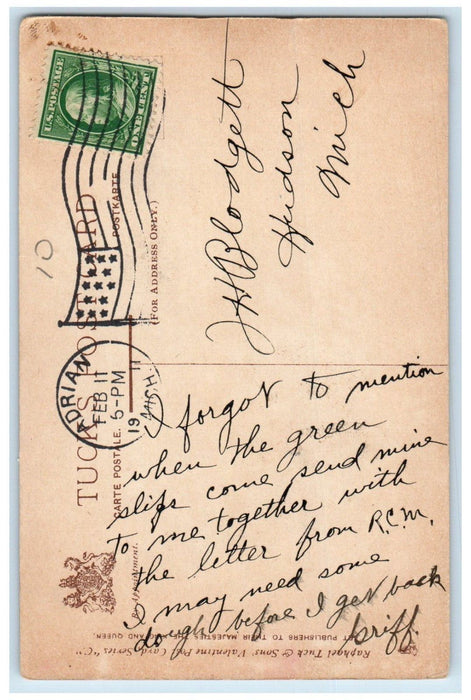 U.S. POSTAGE
ONE CENT
TUCK'S POST CARD
CARTE POSTALE.
POSTKARTE
(FOR ADDRESS ONLY.)
By Appointment.
ADRIAN
FEB 11
6-PM
1911
MICH.
10
J H Blodgett
Hudson
Mich
I forgot to mention
when the green
slips come send mine
to me together with
the letter from R.C.M.
I may need some
dough before I get back
Griff.
Raphael Tuck & Sons' Valentine Post Card Series "C"
ART PUBLISHERS TO THEIR MAJESTIES THE KING AND QUEEN.